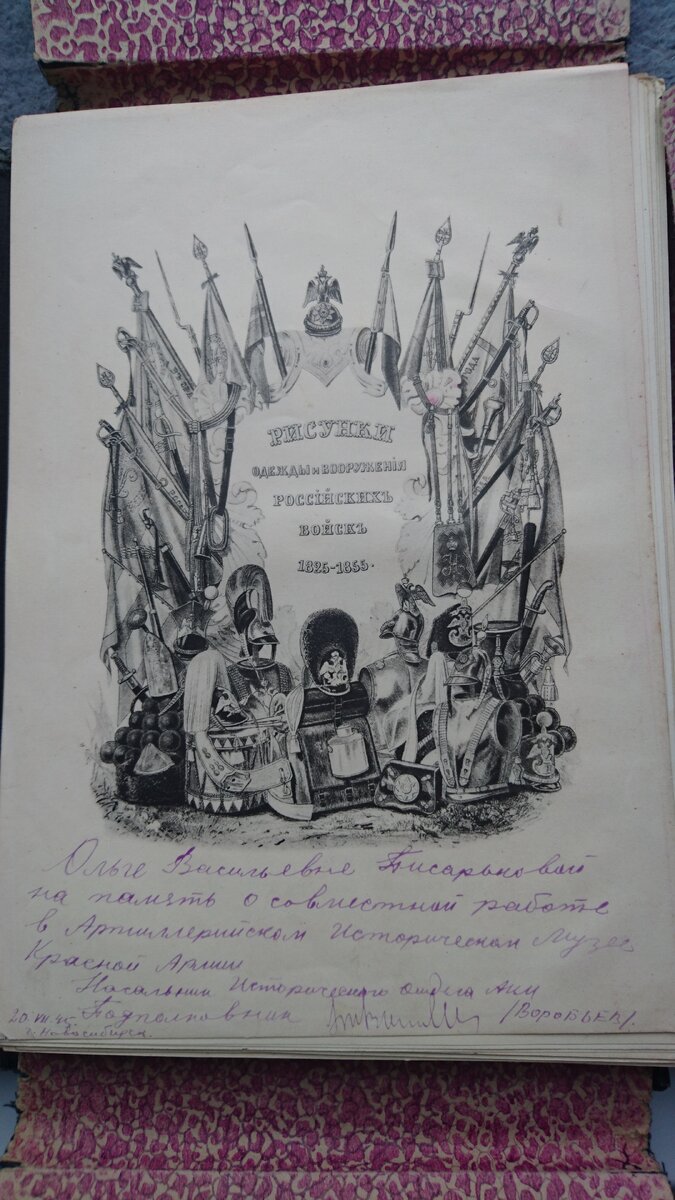 РИСУНКИ
ОДЕЖДЫ и ВООРУЖЕНІЯ
РОССІЙСКИХЪ
ВОЙСКЪ
1825-1855.
Ольге Васильевне Писарьковой
на память о совместной работе
в Артиллерийском Историческом Музее
Красной Армии
Начальник Исторического отдела АИМ
Подполковник /Воробьев/.
20.VII.45
г. Новосибирск.